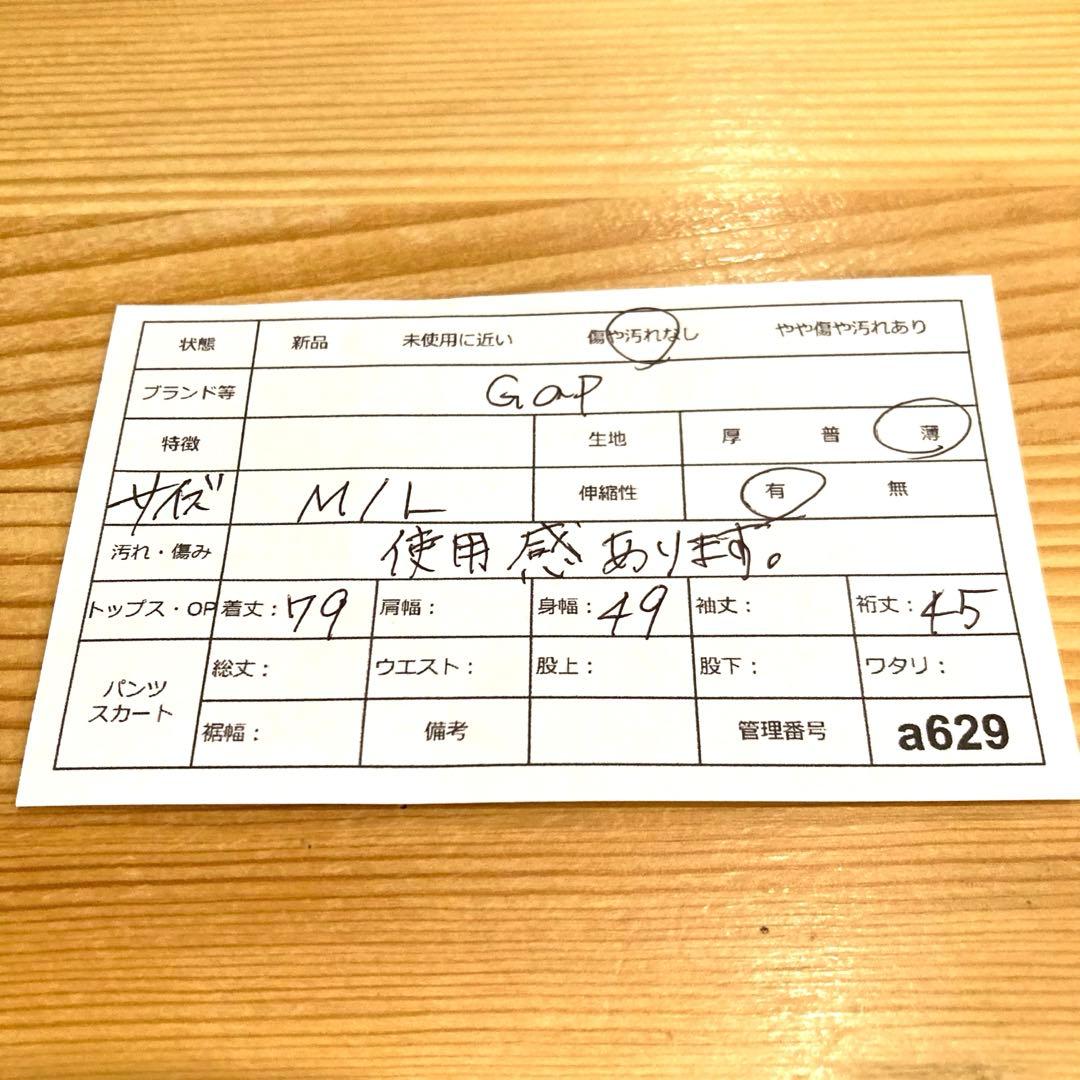 状態 新品 未使用に近い 傷や汚れなし やや傷や汚れあり
ブランド等 Gap
特徴 生地 厚 普 薄
サイズ M/L 伸縮性 有 無
汚れ・傷み 使用感あります。
トップス・OP 着丈：79 肩幅： 身幅：49 袖丈： 裄丈：45
パンツ スカート 総丈： ウエスト： 股上： 股下： ワタリ：
裾幅： 備考 管理番号 a629